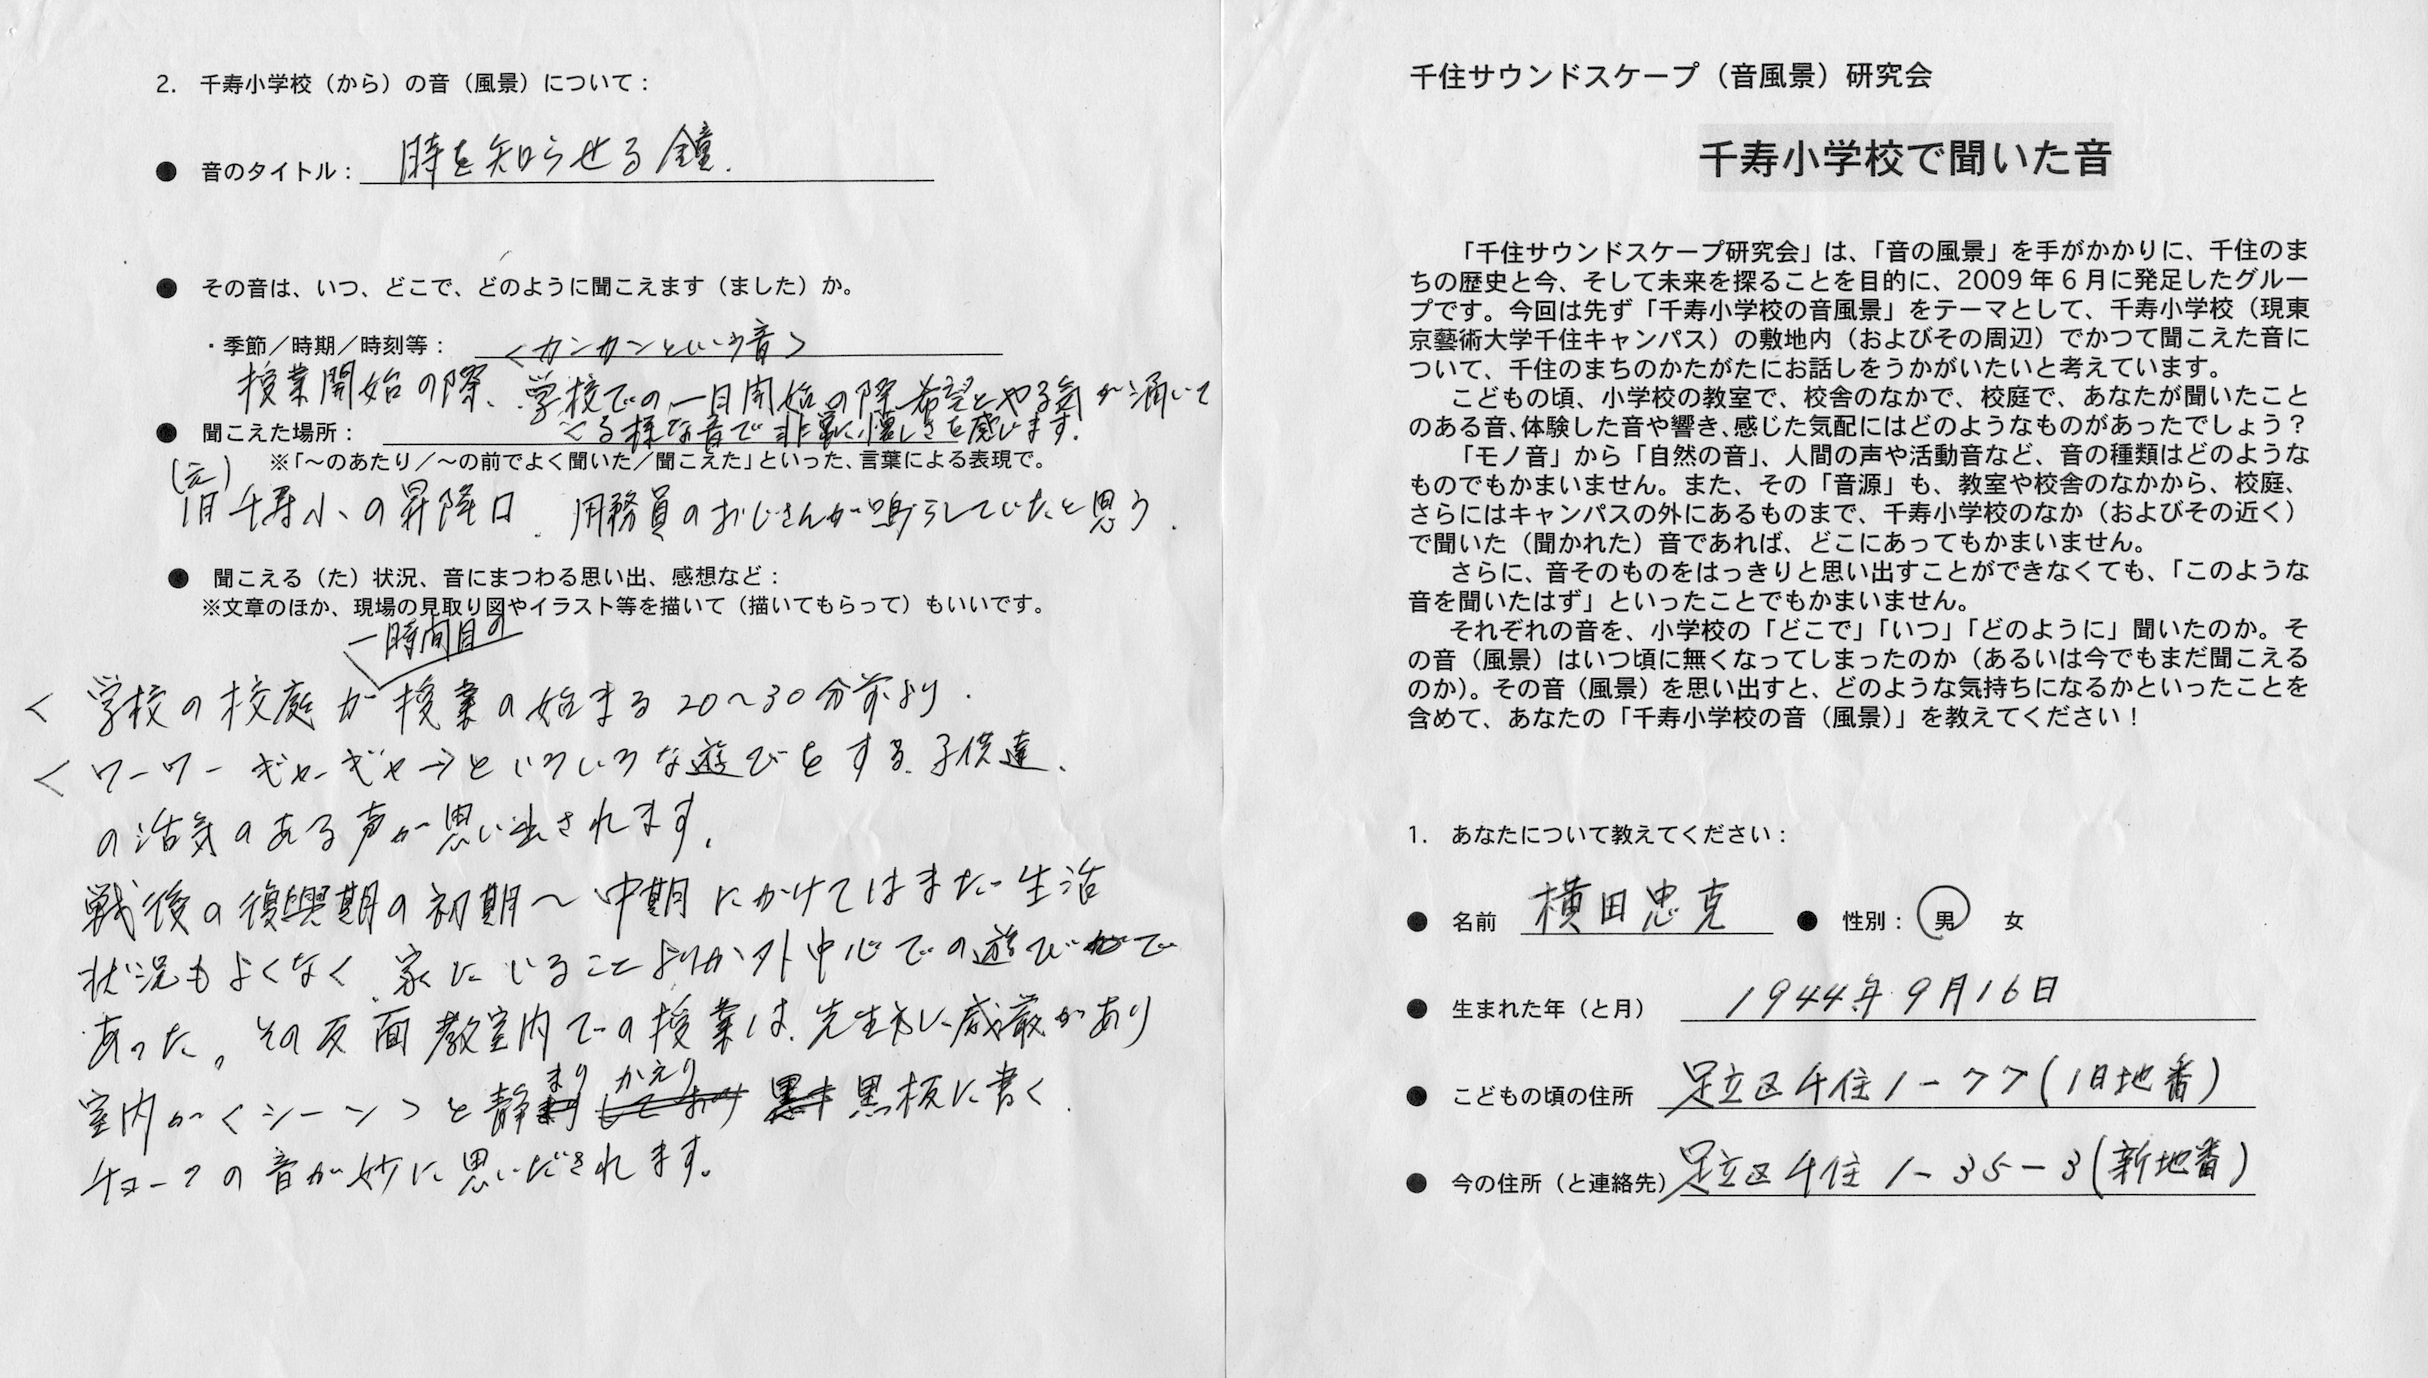 2.　千寿小学校（から）の音（風景）について：
● 音のタイトル： 時を知らせる鐘.
● その音は、いつ、どこで、どのように聞こえます（ました）か。
・季節／時期／時刻等： <カンカンという音>
授業開始の際、学校での一日開始の際 希望とやる気が涌いて
くる様な音で非常に懐しさを感じます.
● 聞こえた場所：
※「～のあたり／～の前でよく聞いた／聞こえた」といった、言葉による表現で。
(元)
旧千寿小の昇降口. 用務員のおじさんが鳴らしていたと思う.
● 聞こえる（た）状況、音にまつわる思い出、感想など：
※文章のほか、現場の見取り図やイラスト等を描いて（描いてもらって）もいいです。
一時間目の
< 学校の校庭が授業の始まる20～30分前より.
< ワーワー ギャーギャー>といろいろな遊びをする子供達.
の活気のある声が思い出されます.
戦後の復興期の初期～中期にかけてはまだ生活
状況もよくなく、家にいることよりか外中心での遊びで
あった。その反面教室内での授業は、先生も威厳があり
まり かえり
室内が<シーン>と静 黒板に書く
チョークの音が妙に思いだされます。
千住サウンドスケープ（音風景）研究会
千寿小学校で聞いた音
「千住サウンドスケープ研究会」は、「音の風景」を手がかかりに、千住のま
ちの歴史と今、そして未来を探ることを目的に、2009 年 6 月に発足したグルー
プです。今回は先ず「千寿小学校の音風景」をテーマとして、千寿小学校（現東
京藝術大学千住キャンパス）の敷地内（およびその周辺）でかつて聞こえた音に
ついて、千住のまちのかたがたにお話しをうかがいたいと考えています。
こどもの頃、小学校の教室で、校舎のなかで、校庭で、あなたが聞いたこと
のある音、体験した音や響き、感じた気配にはどのようなものがあったでしょう？
「モノ音」から「自然の音」、人間の声や活動音など、音の種類はどのような
ものでもかまいません。また、その「音源」も、教室や校舎のなかから、校庭、
さらにはキャンパスの外にあるものまで、千寿小学校のなか（およびその近く）
で聞いた（聞かれた）音であれば、どこにあってもかまいません。
さらに、音そのものをはっきりと思い出すことができなくても、「このような
音を聞いたはず」といったことでもかまいません。
それぞれの音を、小学校の「どこで」「いつ」「どのように」聞いたのか。そ
の音（風景）はいつ頃に無くなってしまったのか（あるいは今でもまだ聞こえる
のか）。その音（風景）を思い出すと、どのような気持ちになるかといったことを
含めて、あなたの「千寿小学校の音（風景）」を教えてください！
1.　あなたについて教えてください：
● 名前 横田忠克 ● 性別： 男 女
● 生まれた年（と月） 1944年9月16日
● こどもの頃の住所 足立区千住1-77(旧地番)
● 今の住所（と連絡先） 足立区千住1-35-3(新地番)